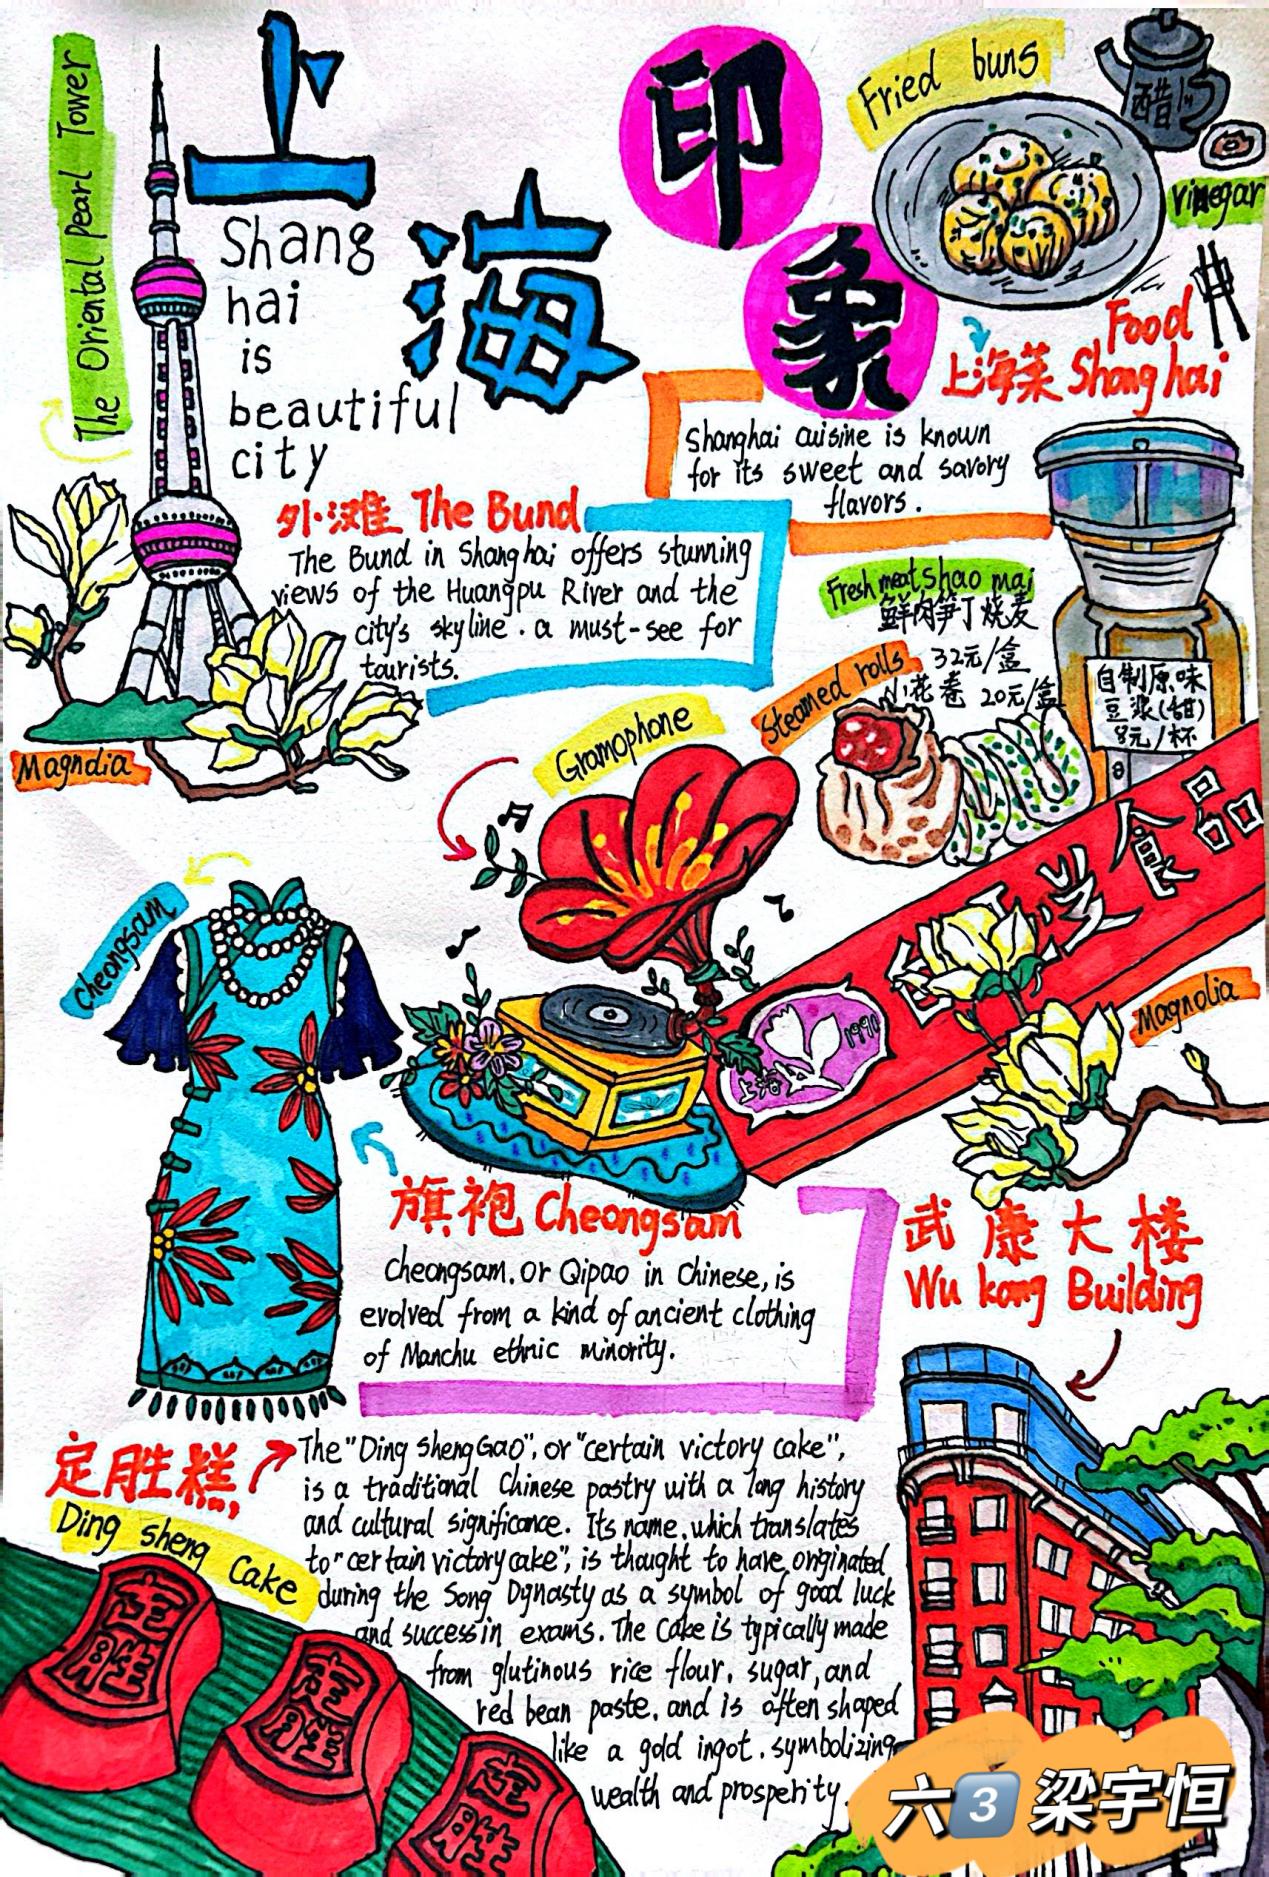 上海
印象
The Oriental Pearl Tower
Shang
hai
is
beautiful
city
Fried buns
醋
vinegar
Food
上海菜 Shanghai
Shanghai cuisine is known
for its sweet and savory
flavors.
外滩 The Bund
The Bund in Shanghai offers stunning
views of the Huangpu River and the
city's skyline. a must-see for
tourists.
Magndia
Fresh meat shao mai
鲜肉笋丁烧麦
32元/盒
Steamed rolls
小花卷 20元/盒
自制原味
豆浆(甜)
8元/杯
Gramophone
美食品
1990
上海
Magnolia
Cheongsam
旗袍 Cheongsam
Cheongsam. Or Qipao in Chinese, is
evolved from a kind of ancient clothing
of Manchu ethnic minority.
武康大楼
Wu kang Building
定胜糕,
Ding sheng Cake
The "Ding sheng Gao", or "certain victory cake",
is a traditional Chinese pastry with a long history
and cultural significance. Its name, which translates
to "certain victory cake", is thought to have originated
during the Song Dynasty as a symbol of good luck
and success in exams. The Cake is typically made
from glutinous rice flour, sugar, and
red bean paste, and is often shaped
like a gold ingot, symbolizing
wealth and prosperity.
定胜
定胜
定胜
六3 梁宇恒